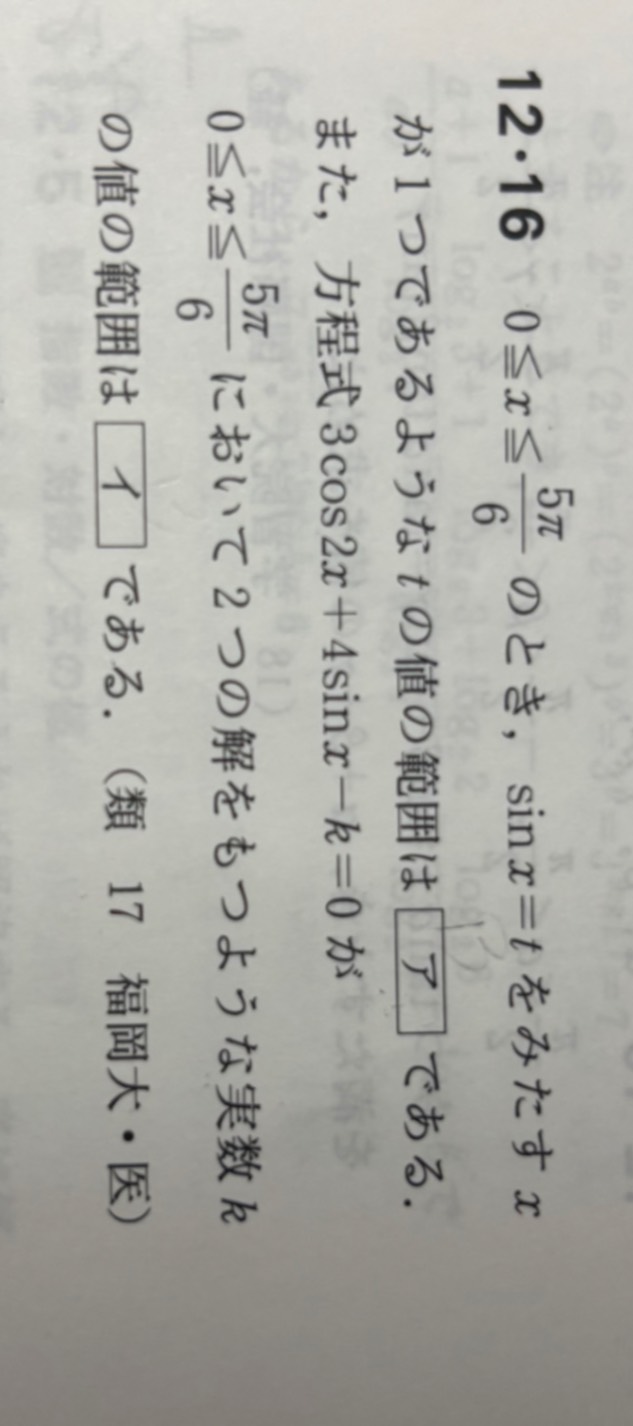 12・16 0≤x≤5π/6 のとき，sinx=t をみたす x
が1つであるような t の値の範囲は ア である．
また，方程式 3cos2x+4sinx−k=0 が
0≤x≤5π/6 において2つの解をもつような実数 k
の値の範囲は イ である．（類 17 福岡大・医）